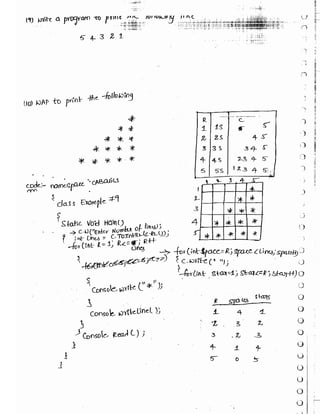 (9) write a program to print the following line
5 4 3 2 1
(10) WAP to print the following
*
* *
* * *
* * * *
* * * * *
R C
1 1S 5
2 2S 4 5
3 3S 3 4 5
4 4S 2 3 4 5
5 5S 1 2 3 4 5
1 2 3 4 5
1 *
2 * *
3 * * *
4 * * * *
5 * * * * *
code:- namespace
{
class Example #9
{
Static void Main()
{ → C.W("Enter Number of lines");
int Lines = C.ToInt32(c.R());
for (int R = 1; R<= Lines; R++)
→ for (int space=R; space<Lines; space++)
{ C.write(" ");
}
for (int star=1; star<=R; star++)
{
Console.write("*");
}
Console.writeLine();
}
Console.ReadL();
}
}
}
R spaces stars
1 4 1
2 3 2
3 2 3
4 1 4
5 0 5